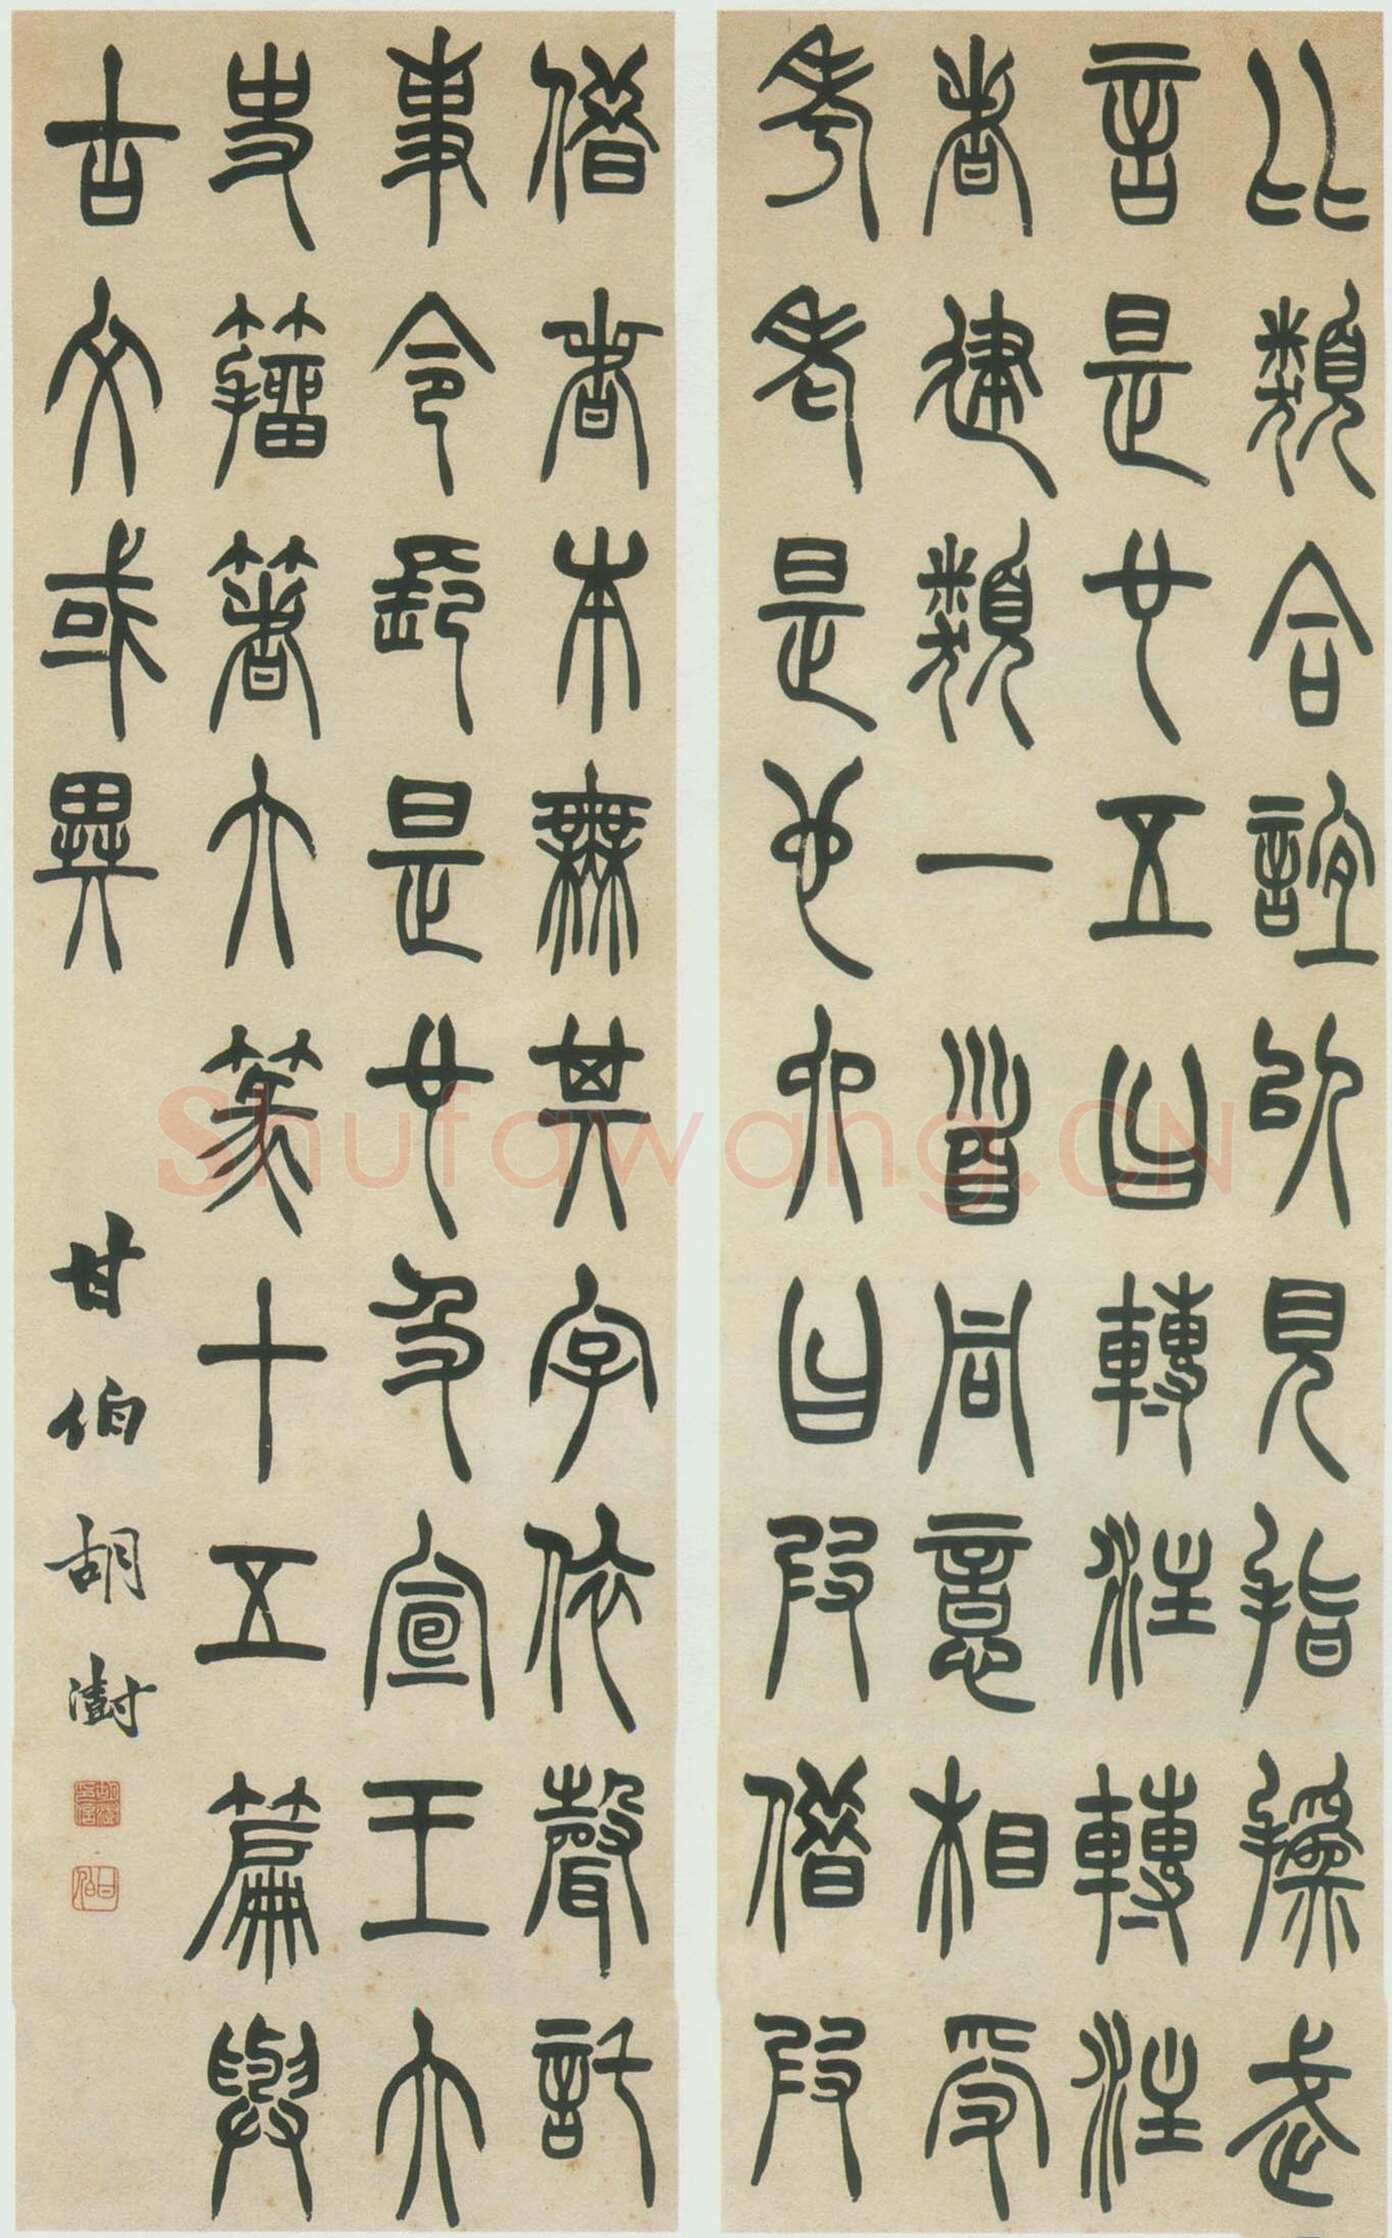 比類合誼以見指撝武
言是也五曰轉注轉注
者建類一首同意相受
考老是也六曰叚借叚
借者本無其字依聲託
事令長是也及宣王大
史籀著大篆十五篇與
古文或異
甘伯胡澍
甘伯
Shufawang.CN